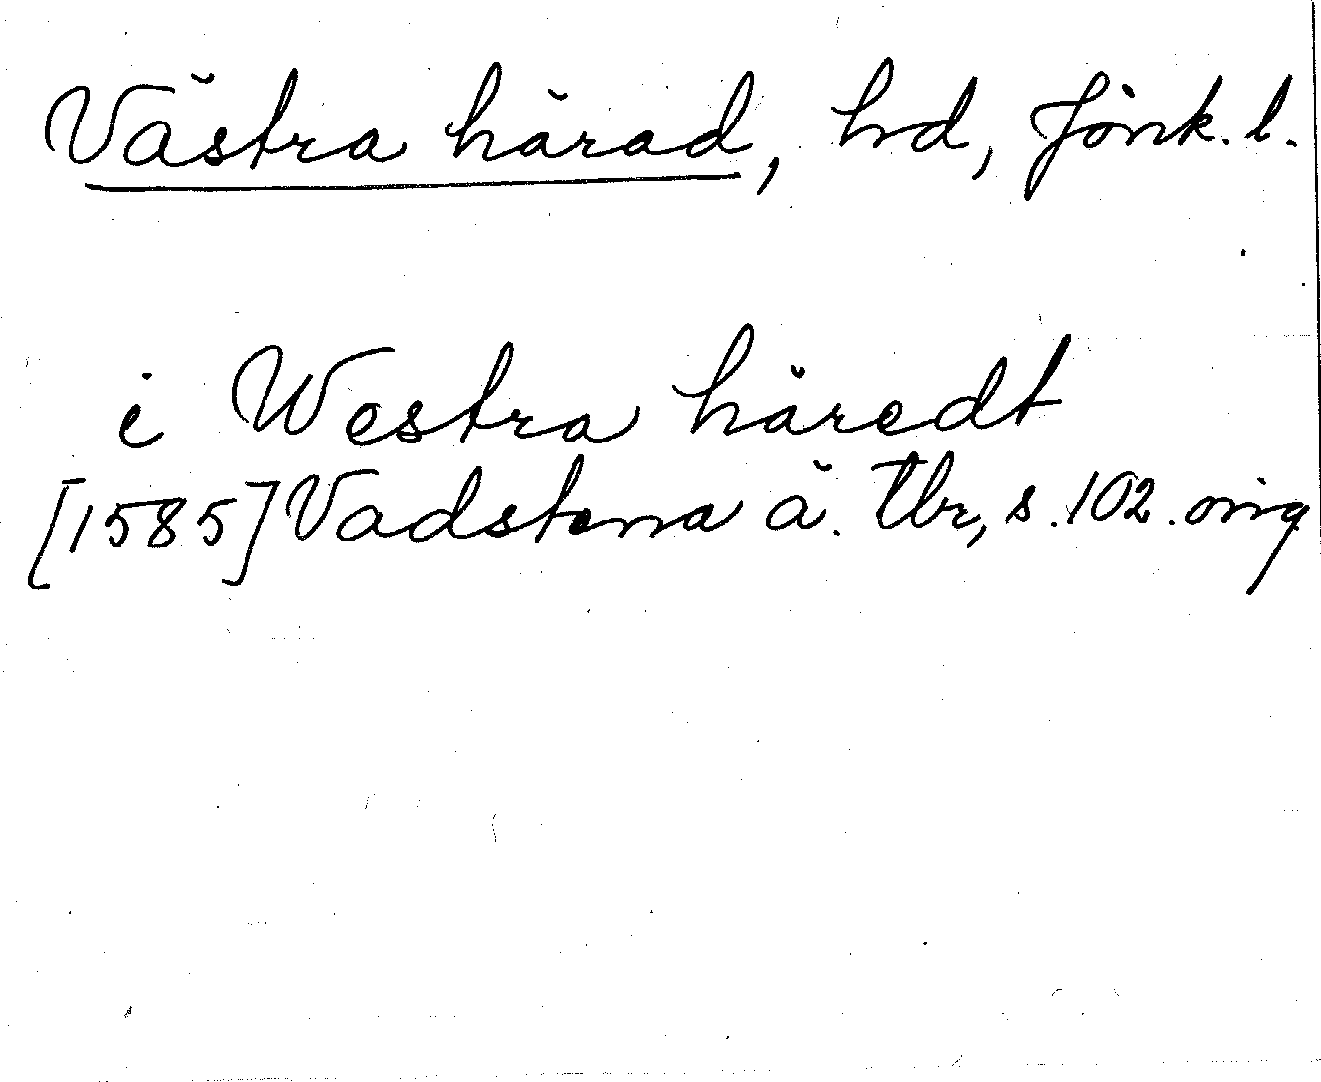 Västra härad, hd, Jönk. l.
i Westra häredt
[1585] Vadstena ä. tbr, s. 102. orig